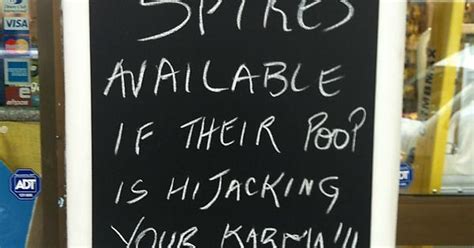 SPIKES
AVAILABLE
IF THEIR POOP
IS HIJACKING
YOUR KARMA!!!
VISA
eftpos
ADT
ADT